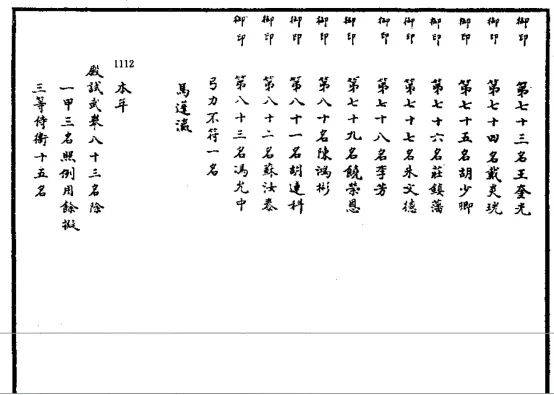 御印 第七十三名王奎光
御印 第七十四名戴炎珖
御印 第七十五名胡少卿
御印 第七十六名莊鎮藩
御印 第七十七名朱文德
御印 第七十八名李芳
御印 第七十九名饒榮恩
御印 第八十名陳鴻彬
御印 第八十一名胡連科
御印 第八十二名蘇汝泰
御印 第八十三名馮光中
弓力不符一名
馬蓬瀛
1112
本年
殿試武舉八十三名除
一甲三名照例用餘擬
三等侍衛十五名